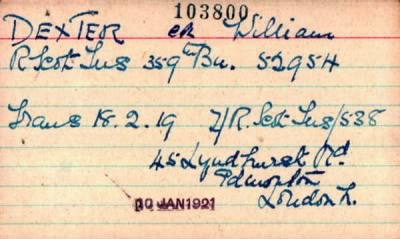 103800
DEXTER William
R Scot Fus Bn. 52954
Trans 18.2.19 R. Scot Fus/538
45 Lyndhurst Rd
Edmonton
London N.
30 JAN 1921